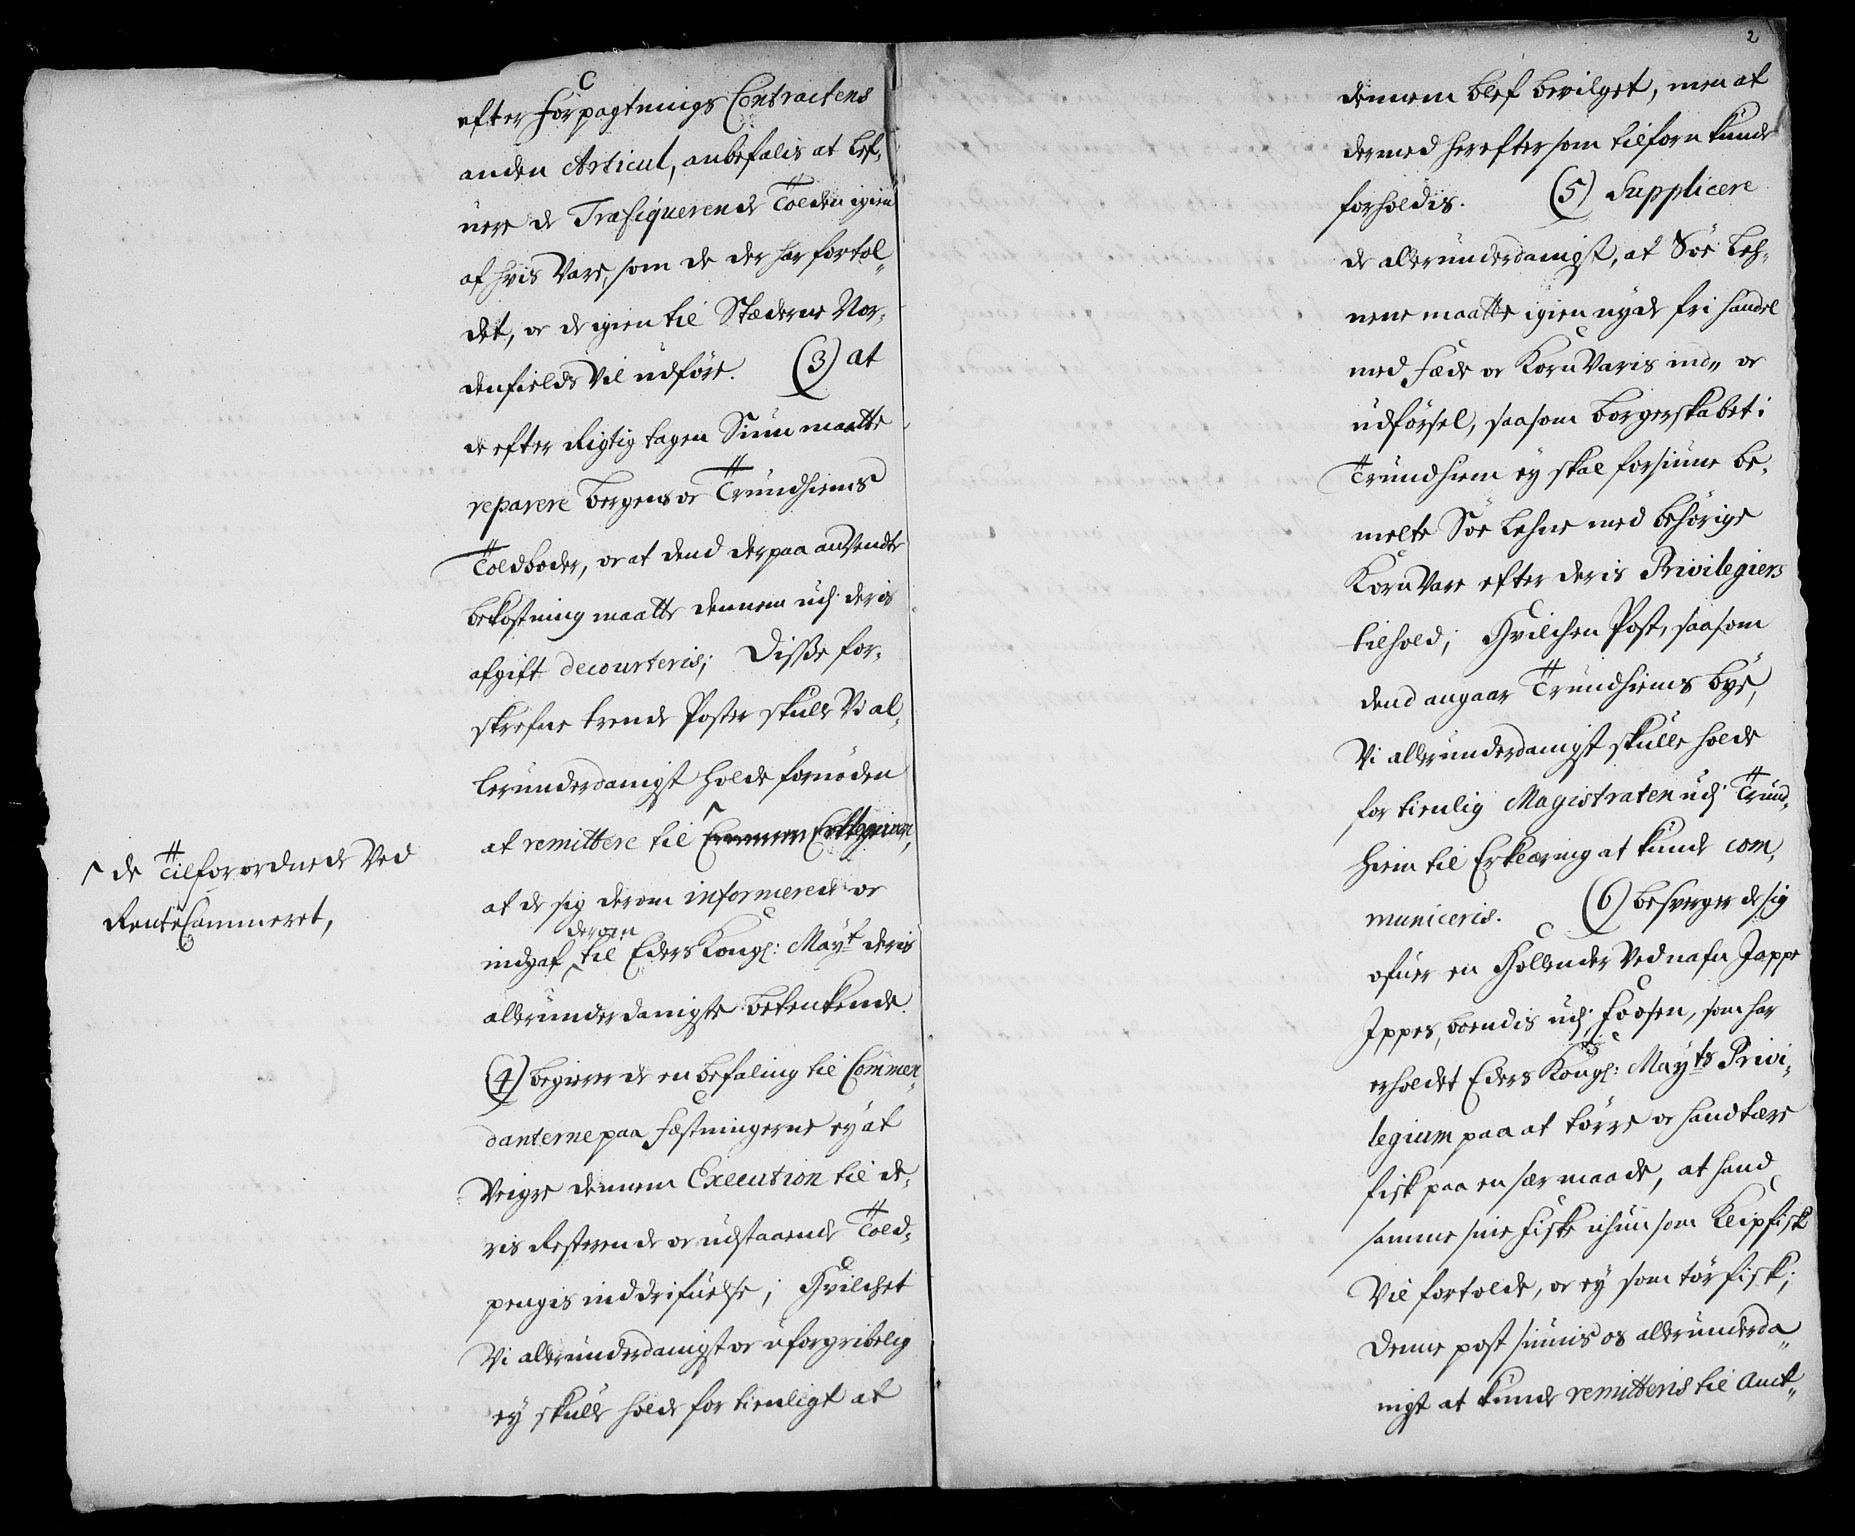 efter Forpagtnings Contractens
anden Articul, anbefalis at lef-
uere de Trafiquerende Tolden igien
af hvis Vare, som de der har fortol-
det, oc de igien til Stæderne Nor-
denfields vil udføre. (3) at
de efter Rigtig tagen Siun maatte
reparere Bergens oc Trundhiems
Toldboder, oc at dend derpaa anvendte
bekostning maatte dennem udj deris
afgift decourteris; Disse for-
skrefne trende Poster skulle Vi al-
lerunderdanigst holde fornøden
at remittere til
^ de Tilforordnede Ved
RenteCammeret,
at de sig derom informerede oc
derom
indgaf til Eders Kongl: Mayt deris
allerunderdanigste betenkende.
(4) begierer de en befaling til Commen-
danterne paa Fæstningerne ey at
Veigre dennem Execution til de-
ris Resterende oc udstaaende Told-
pengis inddrifuelse; Hvilchet
Vi allerunderdanigst oc uforgribelig
ey skulle holde for tienligt at
2
dennem blef bevilget, men at
dermed herefter som tilforn kunde
forholdis. (5) Supplicere
de allerunderdanigst, at Søe Leh-
nene maatte igien nyde fri handel
med Fæde oc Korn Varis ind- oc
udførsel, saasom borgerskabet i
Trundhiem ey skal forsiune be-
melte Søe Lehne med behørige
Korn Vare efter deris Privilegiers
tilhold; Hvilchen Post, saasom
dend angaar Trundhiems bye,
Vi allerunderdanigst skulle holde
for tienlig Magistraten udj Trund-
hiem til Erklæring at kunde com-
municeris. (6) besverger de sig
ofuer en Hollender Ved nafn Jappe
Ippes, boendis udj Foosen, som har
erholdet Eders Kongl: Mayts Privi-
legium paa at tørre oc handtære
fisk paa en sær maade, at hand
samme sine Fiske uhun som Klipfisk
Vil fortolde, oc ey som tørfisk;
Denne post siunis os allerunderda-
nigst at kunde remitteris til Amt-